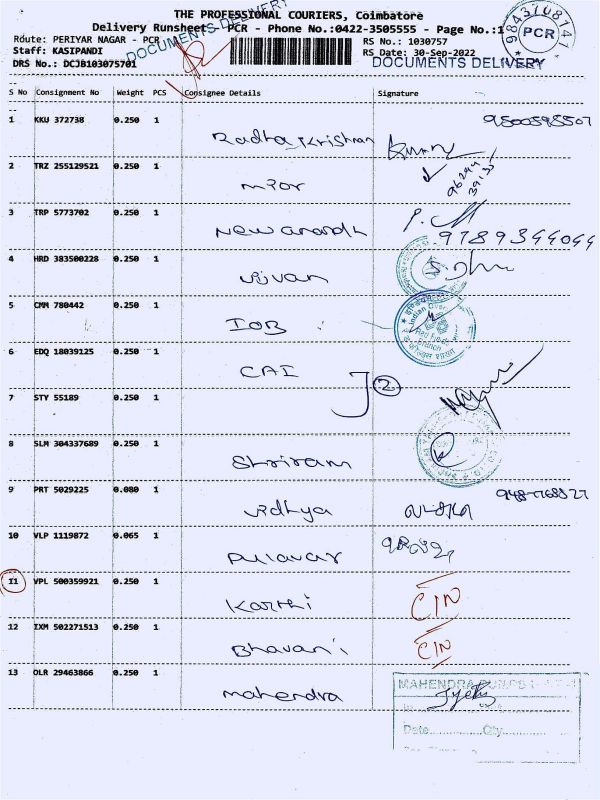 THE PROFESSIONAL COURIERS, Coimbatore
Delivery Runsheet - PCR - Phone No.:0422-3505555 - Page No.:1
Route: PERIYAR NAGAR - PCR
RS No.: 1030757
Staff: KASIPANDI
RS Date: 30-Sep-2022
DRS No.: DCJB103075701
DOCUMENTS DELIVERY
DOCUMENTS DELIVERY
9843708141
PCR
S No Consignment No Weight PCS Consignee Details Signature
1 KKU 372738 0.250 1 Radha Krishnan
2 TRZ 255129521 0.250 1
3 TRP 5773702 0.250 1 New anandh 9789344044
4 HRD 383500228 0.250 1 Vijvan
5 CMM 780442 0.250 1 IOB
6 EDQ 18039125 0.250 1 CAI
2
7 STY 55189 0.250 1
8 SLM 304337689 0.250 1 Shriram
9 PRT 5029225 0.080 1 Vidhya
10 VLP 1119872 0.065 1 Pulavar
11 VPL 500359921 0.250 1 Karthi CIN
12 IXM 502271513 0.250 1 Bhavani CIN
13 OLR 29463866 0.250 1 Mahendra
MAHENDRA
Date............Qty.